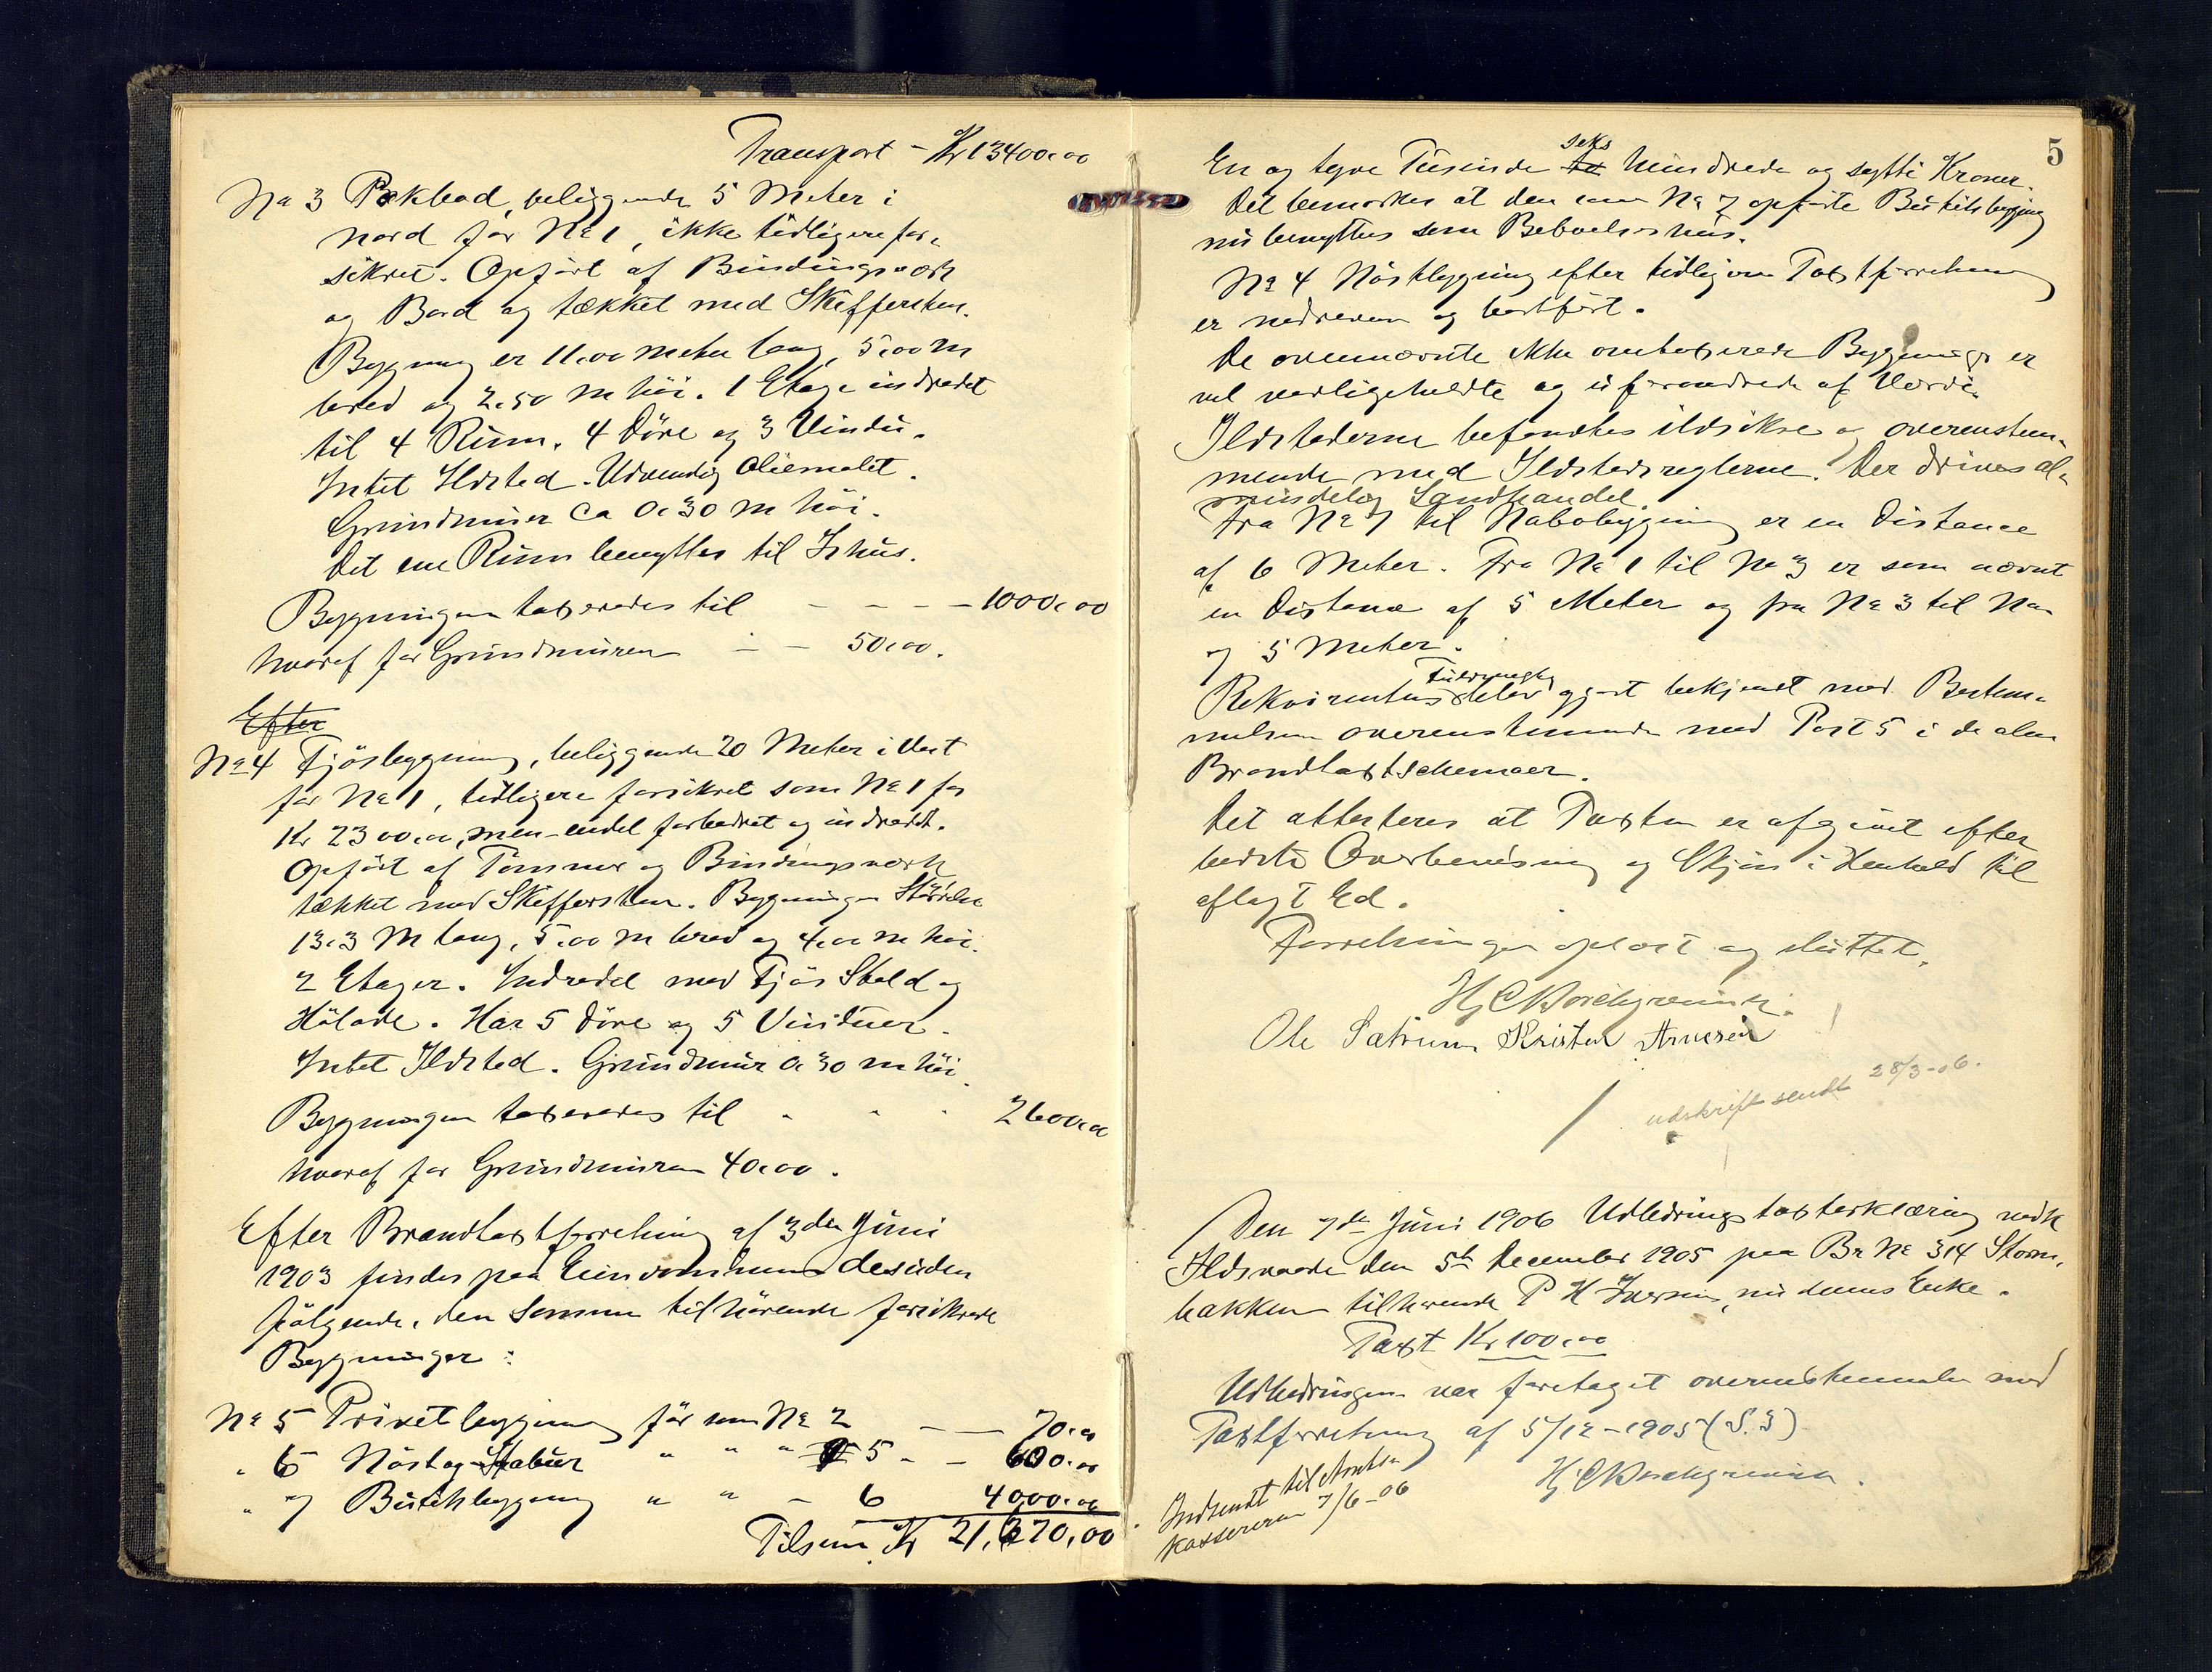 Transport - Kr 13400.00
No 3 Pakbod, beliggende 5 Meter i
Nord for No 1, ikke tidligere for-
sikret. Opført af Bindingsværk
og Bord og tækket med Skiffersten.
Bygning er 11.00 meter lang, 5.00 m
bred og 2.50 m høi. 1 Etage indredet
til 4 Rum. 4 Døre og 3 Vindu.
Intet Ildsted. Udvendig Oliemalet.
Grundmuren ca 0.30 m høi.
Det ene Rum benyttes til Ishus.
Bygningen taxeredes til - - - - 1000.00
hvoraf for Grundmuren - - 50.00.
Efter
No 4 Fjøsbygning, beliggende 20 Meter i Vest
for No 1, tidligere forsikret som No 1 for
Kr 2300.00, men endel forbedret og indredet.
Opført af Tømmer og Bindingsværk
tækket med Skiffersten. Bygningen Størrelse
13.3 M lang, 5.00 m bred og 4.00 m høi.
2 Etager. Indredet med Fjøs Stald og
Hølade. Har 5 Døre og 5 Vinduer.
Intet Ildsted. Grundmur 0.30 m høi
Bygningen taxeredes til - - - 2600.00
hvoraf for Grundmuren 40.00.
Efter Brandtaxtforretning af 3die Juni
1903 findes paa Eiendommen desuden
følgende, den samme tilhørende forsikrede
Bygninger:
No 5 Privetbygning før som No 2 - - 70.00
" 6 Nøst og Stabur " " " 5 - - 600.00
" 7 Butikbygning " " - 6 4000.00
Tilsum Kr 21,670,00
5
seks
En og tyve Tusinde to Hundrede og sytti Kroner.
Det bemerkes at den som No 7 opførte Butiksbygning
nu benyttes som Beboelseshus.
No 4 Nøstbygning efter tidligere Taxtforretning
er nedreven og bortført.
De ovennævnte ikke omtaxerede Bygninger er
vel vedligeholdte og uforandrede af Værdi.
Ildstederne befandtes ildsikre og overenstem-
mende med Ildstedsreglerne. Der drives al-
mindelig Landhandel.
Fra No 7 til Nabobygning er en Distance
af 6 Meter. Fra No 1 til No 3 er som nævnt
en Distance af 5 Meter og fra No 3 til No
7 5 Meter.
Fuldmægtig
Rekvirentens blev gjort bekjendt med Bestem-
melsen overensstemmende med Post 5 i de alm
Brandtaxtschemaer.
Det attesteres at Taxten er afgivet efter
bedste Overbevisning og Skjøn i Henhold til
aflagt Ed.
Forretningen oplæst og sluttet.
Hj C Borchgrevink.
Ole Sætrum Kristen Arnesen
udskrift sendt 28/3-06.
Den 7de Juni 1906 Udbedringstaxterklæring vedk
Ildsvaade den 5te December 1905 paa Br No 314 Storm-
bakken tilhørende P H Iversen, nu dennes Enke.
Taxt Kr 100.00
Udbedringen var foretaget overensstemmende med
Taxtforretning af 5/12-1905 (S. 3)
Hj C Borchgrevink.
Indsendt til Amts-
kassereren 7/6-06